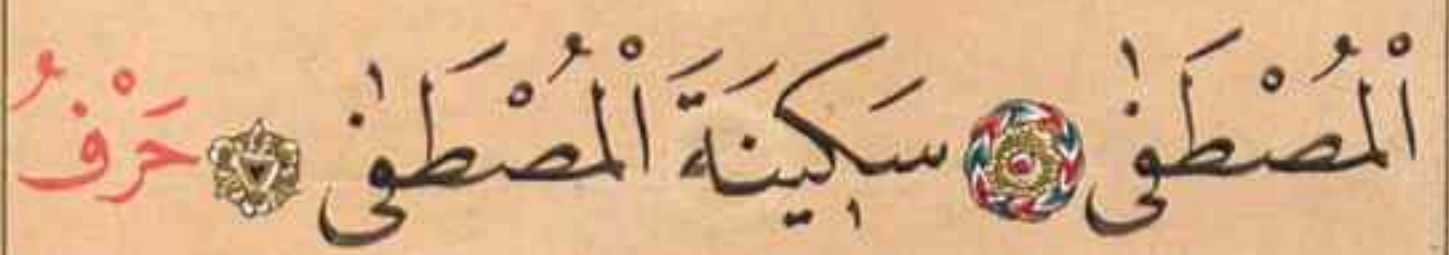 اَلْمُصْطَفٰى سَكِينَةَ اَلْمُصْطَفٰى حَرْفُ